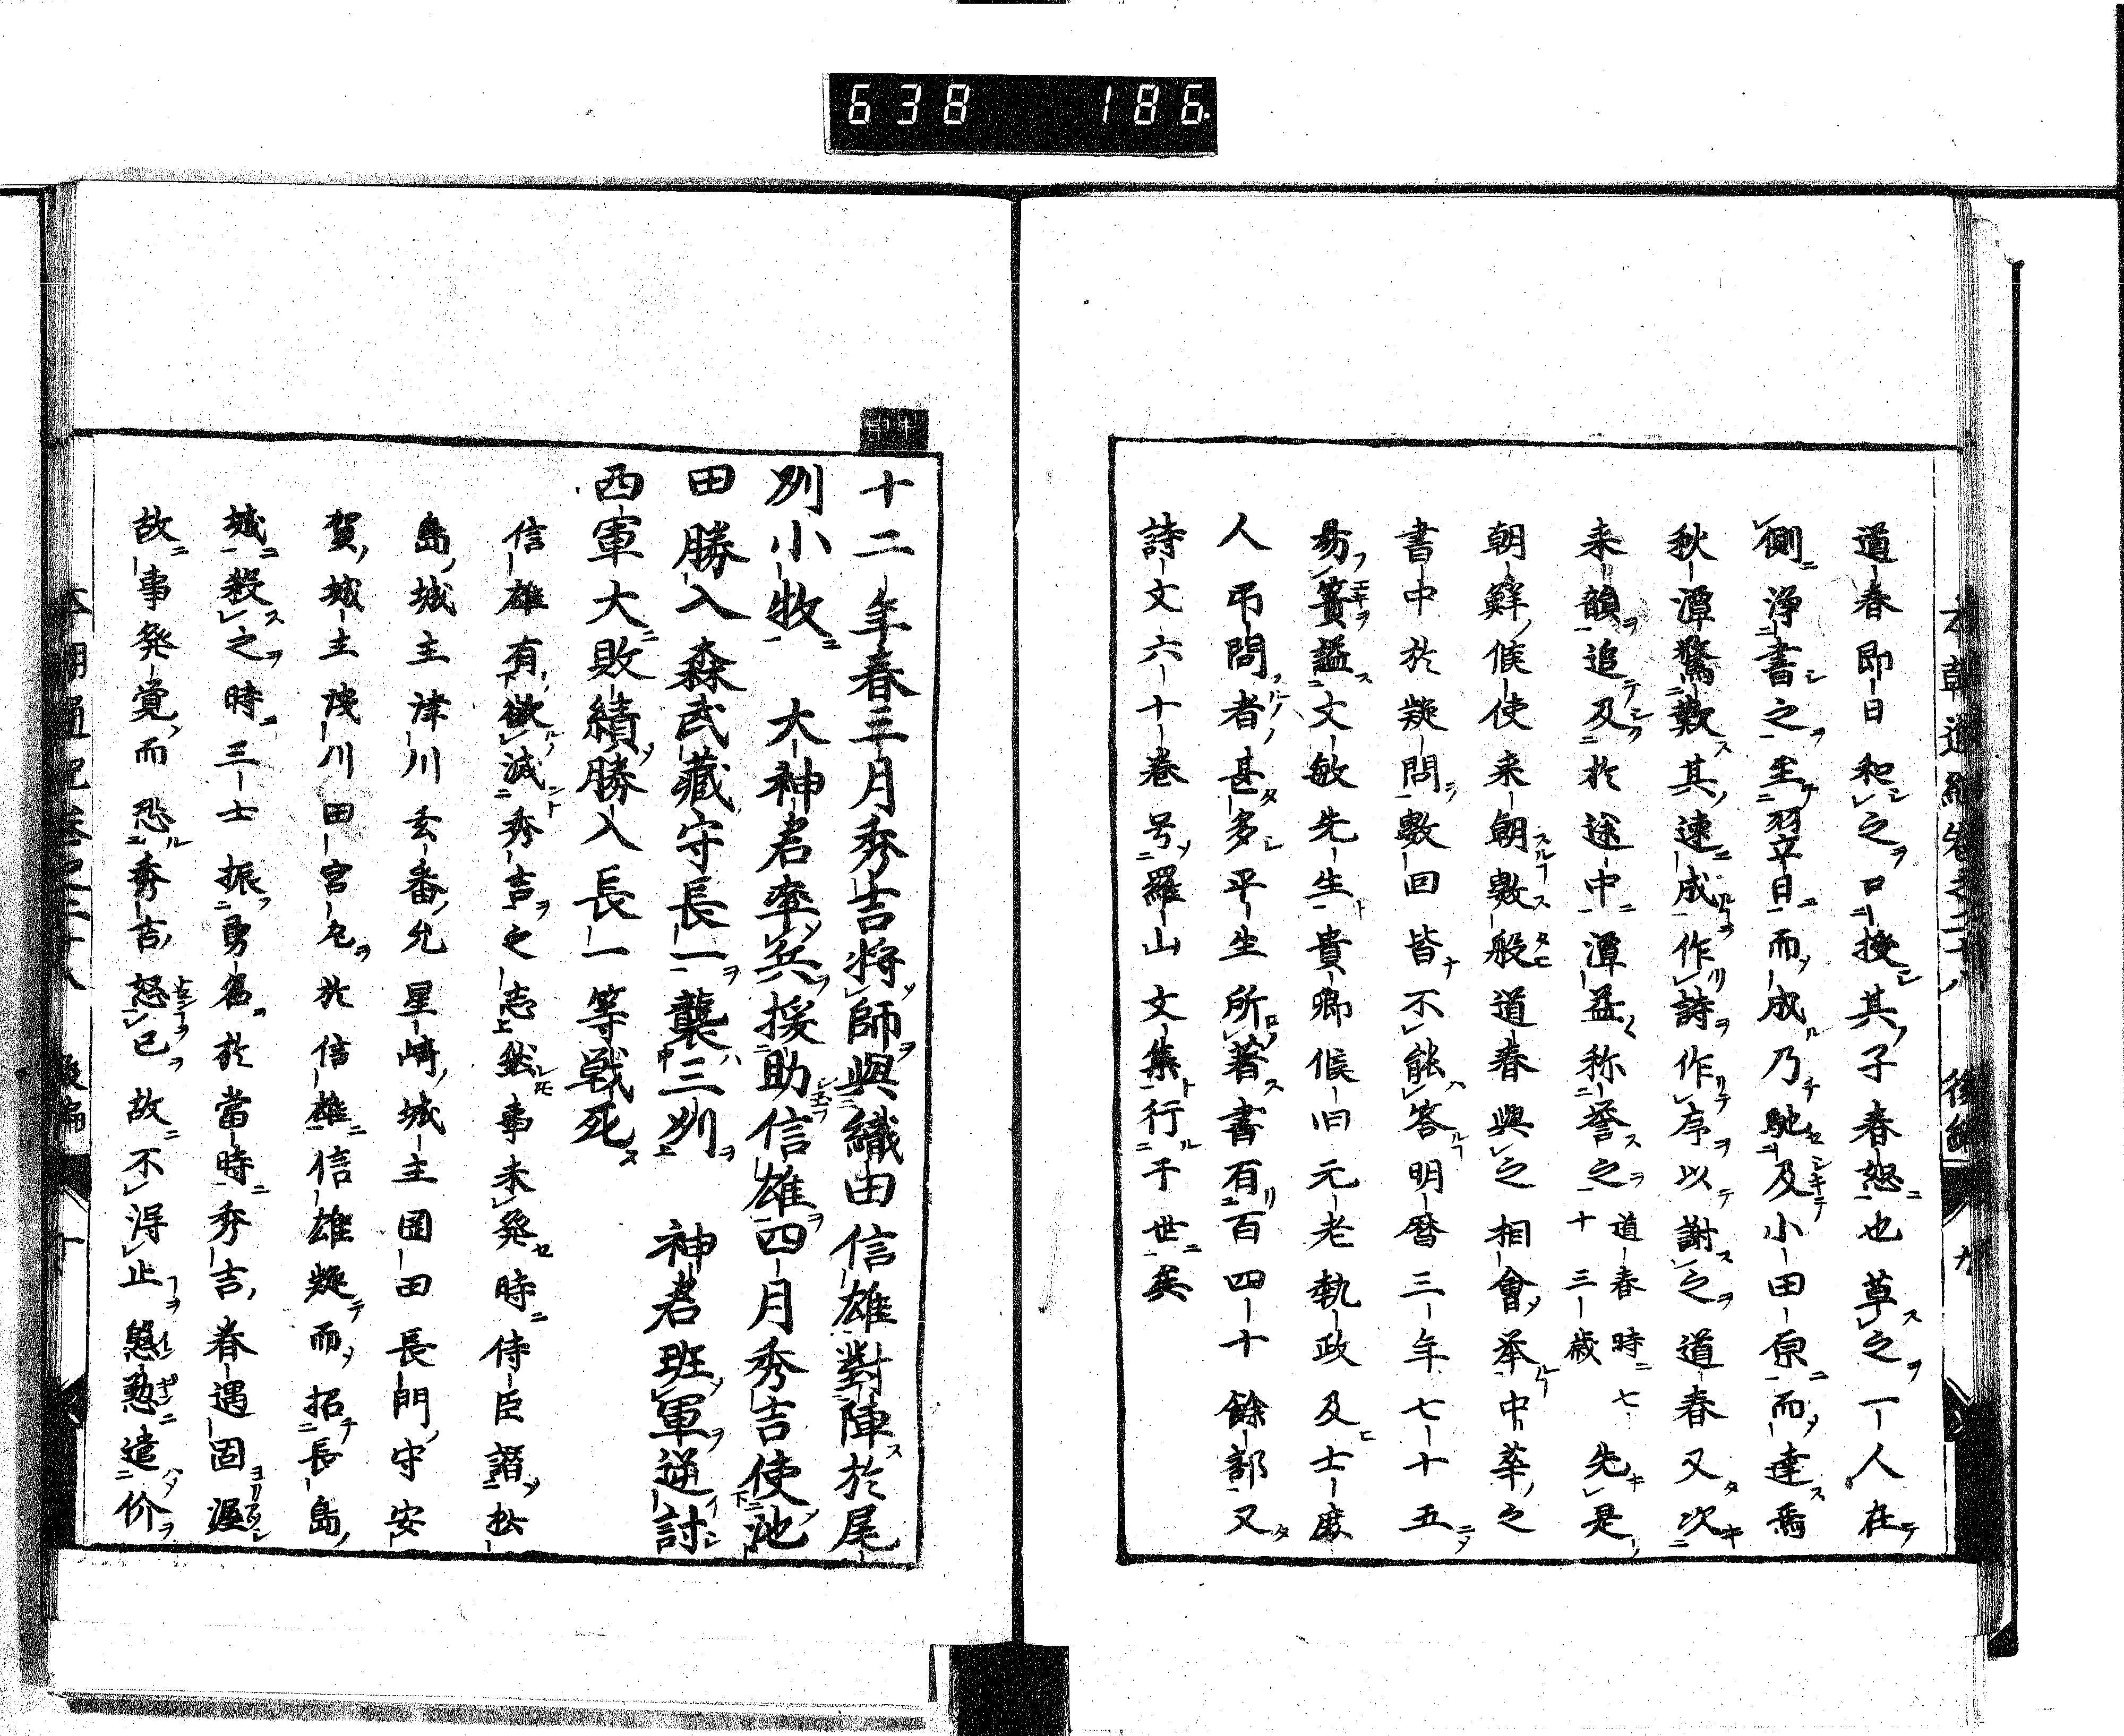 638 186
道春即日和之口授其子春恕也草之一人在
側浄書之至翌日而成乃馳及小田原而達焉
秋潭驚歎其速成作詩作序以謝之道春又次
来韻追及於途中潭益称誉之道春時七十三歳先是
朝鮮候使来朝数般道春與之相會举中華之
書中於疑問数回皆不能答明暦三年七十五
易簀謚文敏先生貴卿候旧元老執政及士庶
人弔問者甚多平生所著書有百四十餘部又
詩文六十巻号羅山文集行于世矣
十二年春三月秀吉将師與織田信雄對陣於尾
刕小牧 大神君率兵援助信雄四月秀吉使池
田勝入森武藏守長一襲三刕 神君班軍逆討
西軍大敗績勝入長一等戦死
信雄有欲滅秀吉之志然事未発時侍臣譖松
島城主津川玄番允星崎城主岡田長門守安
賀城主浅川田宮丸於信雄信雄疑而招長島
城殺之時三士振勇名於當時秀吉眷遇固渥
故事発覚而恐秀吉怒已故不得止慇懃遣价